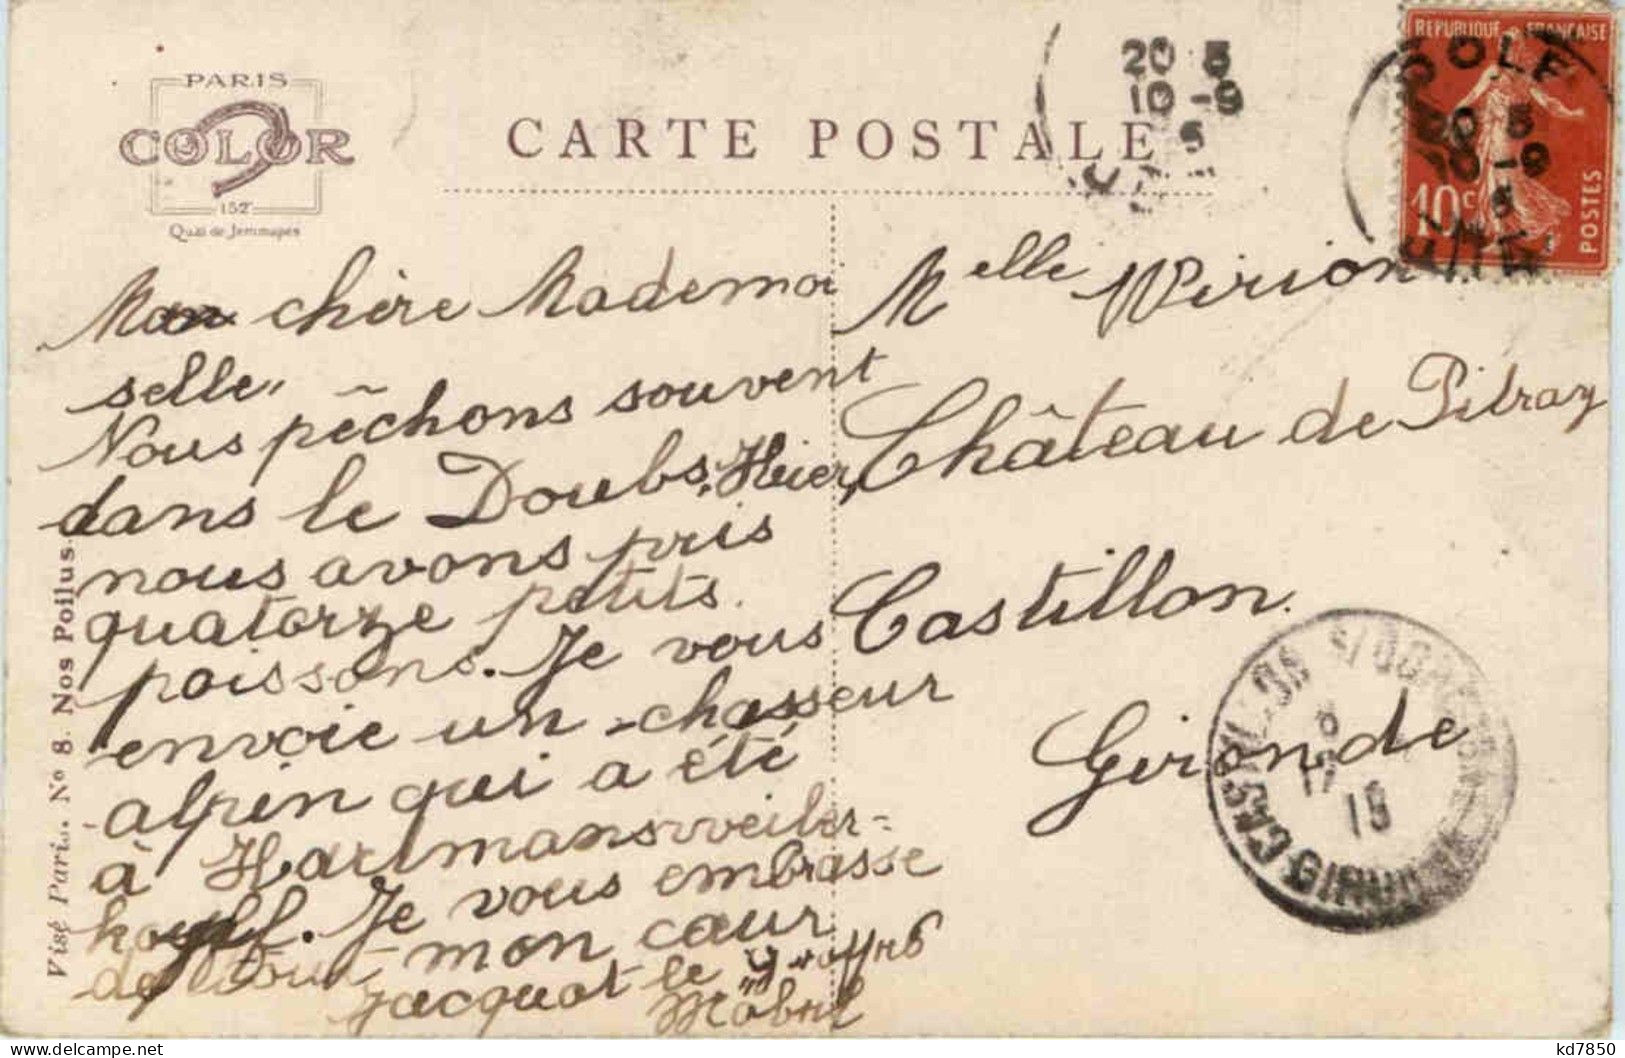 PARIS
COLOR
152
Quai de Jemmapes
CARTE POSTALE
20 5
10-9
5
REPUBLIQUE FRANÇAISE
DOLE
20 5
10-9
5
JURA
10c
POSTES
Mon chère Mademoi
selle,,
Nous pêchons souvent
dans le Doubs. Hier,
nous avons pris
quatorze petits
poissons. Je vous
envoie un chasseur
alpin qui a été
à Hartmansvweiler-
kopff. Je vous embrasse
de tout mon cœur
Jacquot le
Melle Wirion
Château de Pitray
Castillon
Gironde
CASTILLON S/DORDOGNE
GIRONDE
15
Visé Paris. No 8. Nos Poilus
kd7850